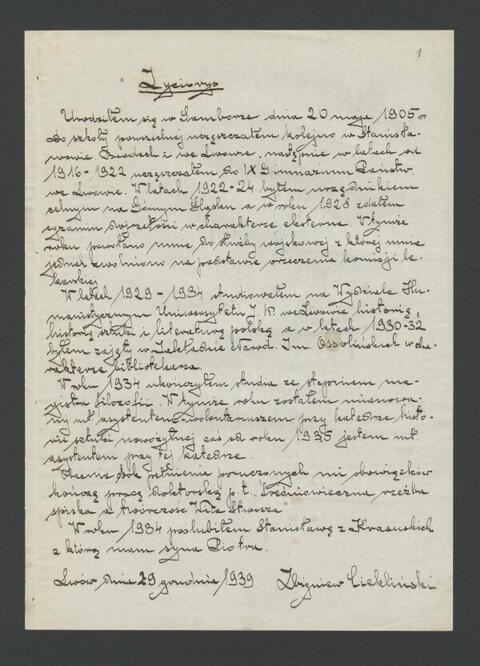 1
Życiorys
Urodziłem się w Samborze dnia 20 maja 1905 r.
Do szkoły powszechnej uczęszczałem kolejno w Stanisła-
wowie Brodach i we Lwowie, następnie w latach od
1916-1922 uczęszczałem do IX Gimnazjum Państw.
we Lwowie. W latach 1922-24 byłem urzędnikiem
celnym na Górnym Śląsku a w roku 1928 zdałem
egzamin dojrzałości w charakterze eksterna. W tymże
roku powołano mnie do służby wojskowej z której mnie
jednak zwolniono na podstawie orzeczenia komisji le-
karskiej.
W latach 1929-1934 studiowałem na Wydziale Hu-
manistycznym Uniwersytetu J. K. we Lwowie historię,
historię sztuki i literaturę polską a w latach 1930-32
byłem zajęty w Zakładzie Narod. Im. Ossolińskich w cha-
rakterze bibliotekarza.
W roku 1934 ukończyłem studia ze stopniem ma-
gistra filozofii. W tymże roku zostałem mianowa-
ny mł. asystentem-wolontariuszem przy katedrze histo-
rii sztuki nowożytnej zaś od roku 1935 jestem mł.
asystentem przy tej katedrze.
Obecnie obok pełnienia poruczonych mi obowiązków
kończę pracę doktorską p. t. "Średniowieczna rzeźba
spiska a twórczość Wita Stwosza"
W roku 1934 poślubiłem Stanisławę z Krasuskich
z którą mam syna Piotra.
Lwów dnia 29 grudnia 1939 Zbigniew Ciekliński